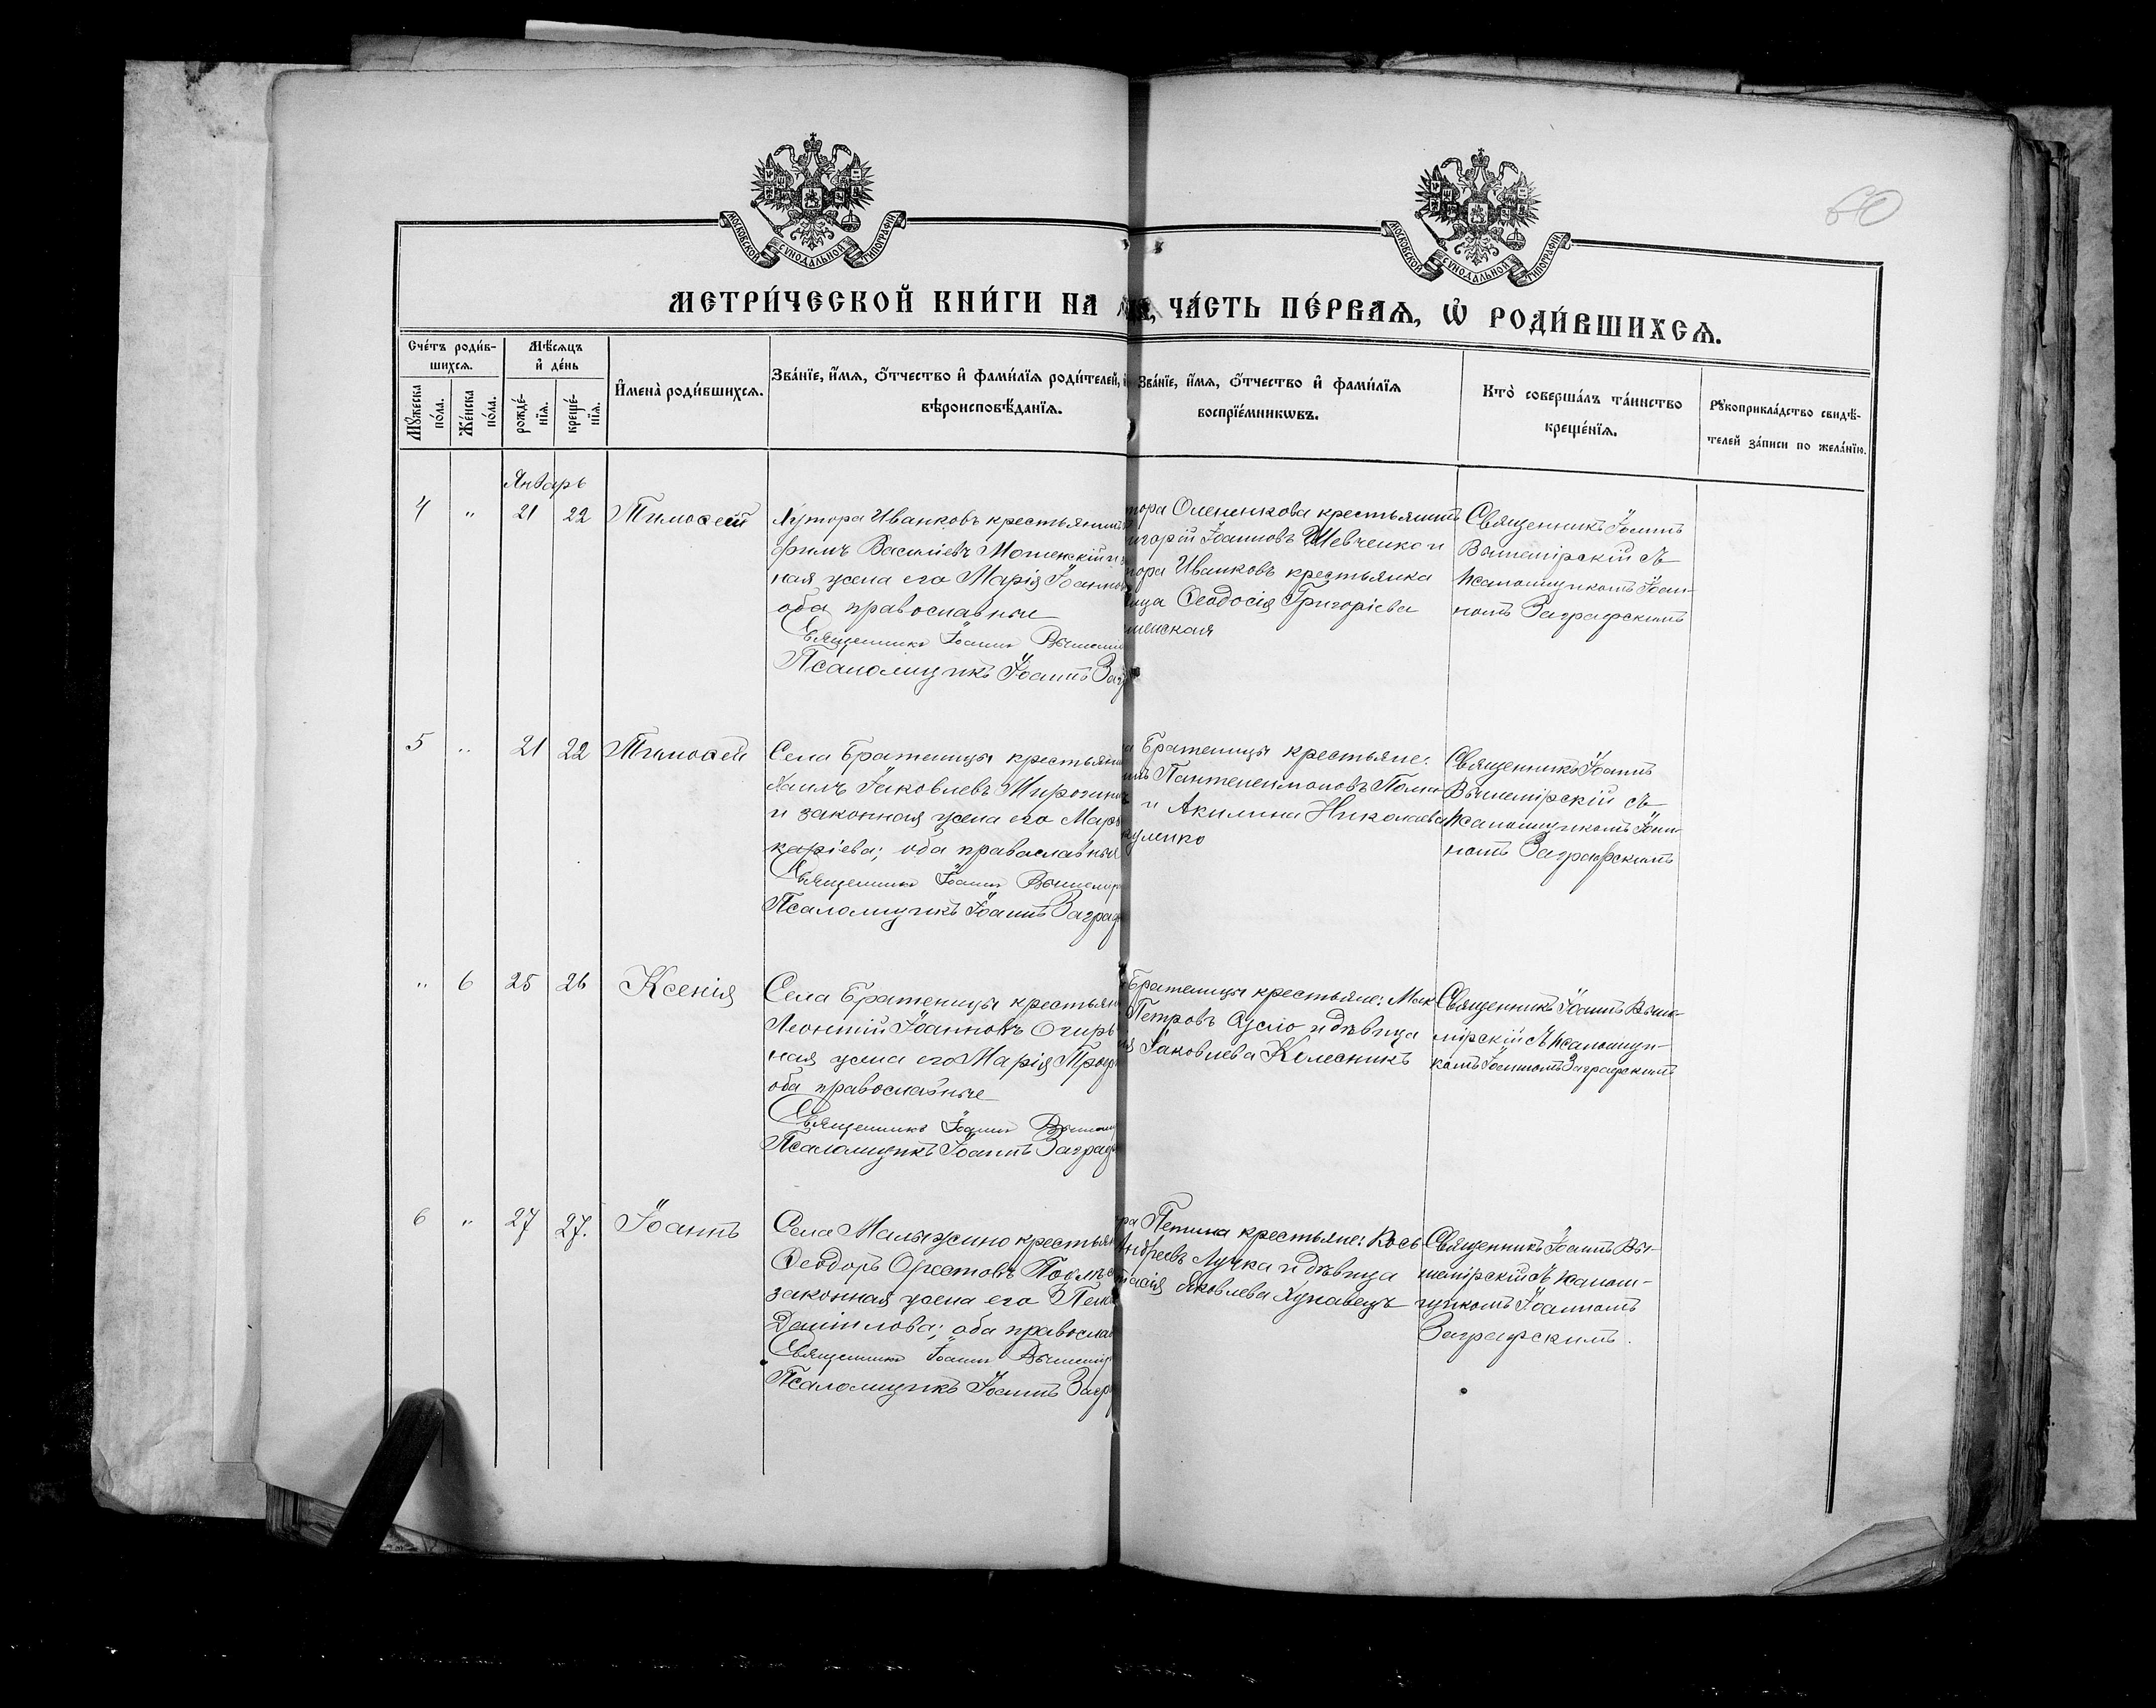 60
МОСКОВСКОЙ СѴНОДАЛЬНОЙ ТИПОГРАФІИ
МОСКОВСКОЙ СѴНОДАЛЬНОЙ ТИПОГРАФІИ
МЕТРИ́ЧЕСКОЙ КНИ́ГИ НА
ЧА́СТЬ ПЕ́РВАѦ, Ѡ҆ РОДИ́ВШИХСѦ.
Сче́тъ роди́в-
шихсѧ.
Мꙋ́жеска по́ла.
Же́нска по́ла.
Мѣ́сѧцъ
и҆ де́нь
рожде́-
нїѧ.
креще́-
нїѧ.
И҆мена̀ роди́вшихсѧ.
Зва́нїе, и҆́мѧ, ѻ҆́тчество и҆ фами́лїѧ роди́телей,
вѣроисповѣ́данїѧ.
Зва́нїе, и҆́мѧ, ѻ҆́тчество и҆ фами́лїѧ
воспрїе́мникѡвъ.
Кто̀ соверша́лъ та́инство
креще́нїѧ.
Рꙋкоприкла́дство свидѣ́-
телей за́писи по жела́нїю.
Январь
4 " 21 22 Тимоѳей
Хутора Иванковъ крестьянинъ
Васильевъ
ная жена его Марія Іоаннов
оба православные
Священникъ Іоаннъ
Псаломщикъ Іоаннъ Загр
тора Олененкова крестьянинъ
игорій Іоанновъ Шевченко и
тора Иванковъ крестьянка
ица Ѳеодосія Григоріева
Священникъ Іоаннъ
Вышемірскій съ
псаломщикомъ Іоан-
номъ Заграфскимъ
5 " 21 22 Тимоѳей
Села Братеницы крестьянин
Іаковлевъ
и законная жена его Мар
каріева; оба православные
Священникъ Іоаннъ Вышемір
Псаломщикъ Іоаннъ Заграф
Братеницы крестьяне:
Пантелеимоновъ
и Акилина Николаева
Священникъ Іоаннъ
Вышемірскій съ
псаломщикомъ Іоан-
номъ Заграфскимъ
" 6 25 26 Ксенія
Села Братеницы крестьян
Леонтій Іоанновъ Огирь
ная жена его Марія Троф
оба православные
Священникъ Іоаннъ
Псаломщикъ Іоаннъ Заграф
Братеницы крестьяне: Мак
Петровъ и дѣвица
Іаковлева Колесникъ
Священникъ Іоаннъ Выше-
мірскій съ псаломщи-
комъ Іоанномъ Заграфскимъ
6 " 27 27. Іоаннъ
Села Малыжино крестьян
Ѳеодоръ Орестовъ
законная жена его Пел
Даніилова; оба правосла
Священникъ Іоаннъ Вышемір
Псаломщикъ Іоаннъ Загр
крестьяне: Кось
Андреевъ Лучка и дѣвица
тасія Яковлева
Священникъ Іоаннъ Вы-
шемірскій съ псалом-
щикомъ Іоанномъ
Заграфскимъ.